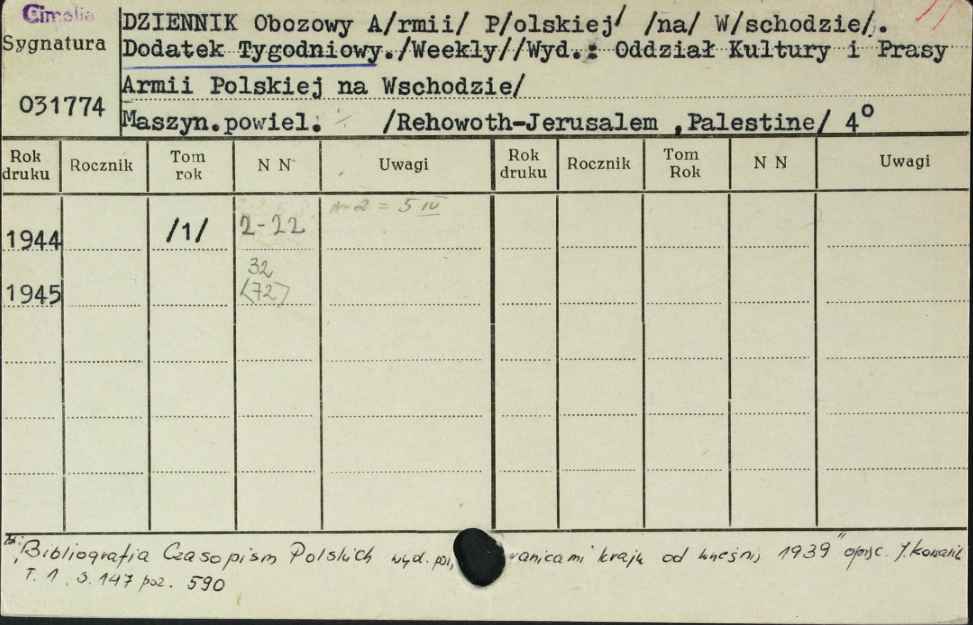 Cimelia
DZIENNIK Obozowy A/rmii/ P/olskiej/ /na/ W/schodzie/.
Sygnatura
Dodatek Tygodniowy./Weekly//Wyd.: Oddział Kultury i Prasy
Armii Polskiej na Wschodzie/
031774
Maszyn.powiel. /Rehowoth-Jerusalem ,Palestine/ 4°
Rok druku Rocznik Tom rok N N Uwagi Rok druku Rocznik Tom Rok N N Uwagi
1944 /1/ 2-22 2 = 5 IV
1945 32 (72)
"Bibliografia Czasopism Polskich wyd. granicami kraju od 1939"
T. 1. s. 147 poz. 590